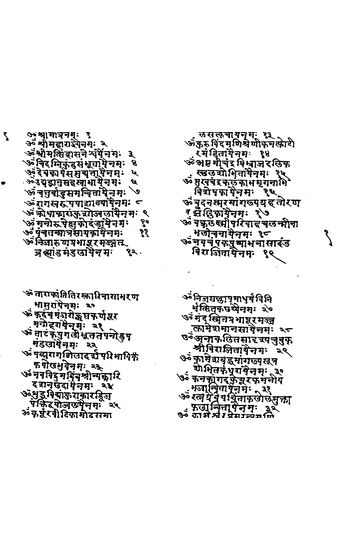 ॐ श्रीमात्रेनमः १
ॐ श्रीमहाराज्ञैनमः २
ॐ श्रीमत्सिंहासनेश्वर्यैनमः ३
ॐ चिदग्निकुंडसंभूतायैनमः ४
ॐ देवकार्यसमुद्यतायैनमः ५
ॐ उद्यद्भानुसहस्राभायैनमः ६
ॐ चतुर्बाहुसमन्वितायैनमः ७
ॐ रागस्वरूपपाशाढ्यायैनमः ८
ॐ क्रोधाकारांकुशोज्वलायैनमः ९
ॐ मनोरूपेक्षुकोदंडायैनमः १०
ॐ पंचतन्मात्रसायकायैनमः ११
ॐ निजारुणप्रभापूरमज्जत्
ब्रह्मांडमंडलायैनमः १२
लसत्कचायैनमः १३
ॐ कुरुविंदमणिश्रेणीकनत्कोटी
रमंडितायैनमः १४
ॐ अष्टमीचंद्रविभ्राजदलिक
स्थलशोभितायैनमः १५
ॐ मुखचंद्रकलंकाभमृगनाभि
विशेषकायैनमः १६
ॐ वदनस्मरमांगल्यगृहतोरण
चिल्लिकायैनमः १७
ॐ वक्त्रलक्ष्मीपरिवाहचलन्मीना
भलोचनायैनमः १८
ॐ नवचंपकपुष्पाभनासादंड
विराजितायैनमः १९
ॐ ताराकांतितिरस्कारिनासाभरण
भासुरायैनमः २०
ॐ कदंबमंजरीक्लृप्तकर्णपूर
मनोहरायैनमः २१
ॐ ताटंकयुगलीभूततपनोडुप
मंडलायैनमः २२
ॐ पद्मरागशिलादर्शपरिभाविक
पोलभुवेनमः २३
ॐ नवविद्रुमबिंबश्रीन्यक्कारि
रदनछदायैनमः २४
ॐ शुद्धविद्यांकुराकारद्विज
पंक्तिद्वयोज्वलायैनमः २५
ॐ कर्पूरवीटिकामोदसमा
ॐ निजसल्लापमाधुर्यविनि
र्भर्त्सितकछप्यैनमः २७
ॐ मंदस्मितप्रभापूरमज्ज
त्कामेशमानसायैनमः २८
ॐ अनाकलितसादृश्यचुबुक
श्रीविराजितायैनमः २९
ॐ कामेशबद्धमांगल्यसूत्र
शोभितकंधरायैनमः ३०
ॐ कनकांगदकेयूरकमनीय
भुजान्वितायैनमः ३१
ॐ रत्नग्रैवेयचिंताकलोलमुक्ता
फलान्वितायैनमः ३२